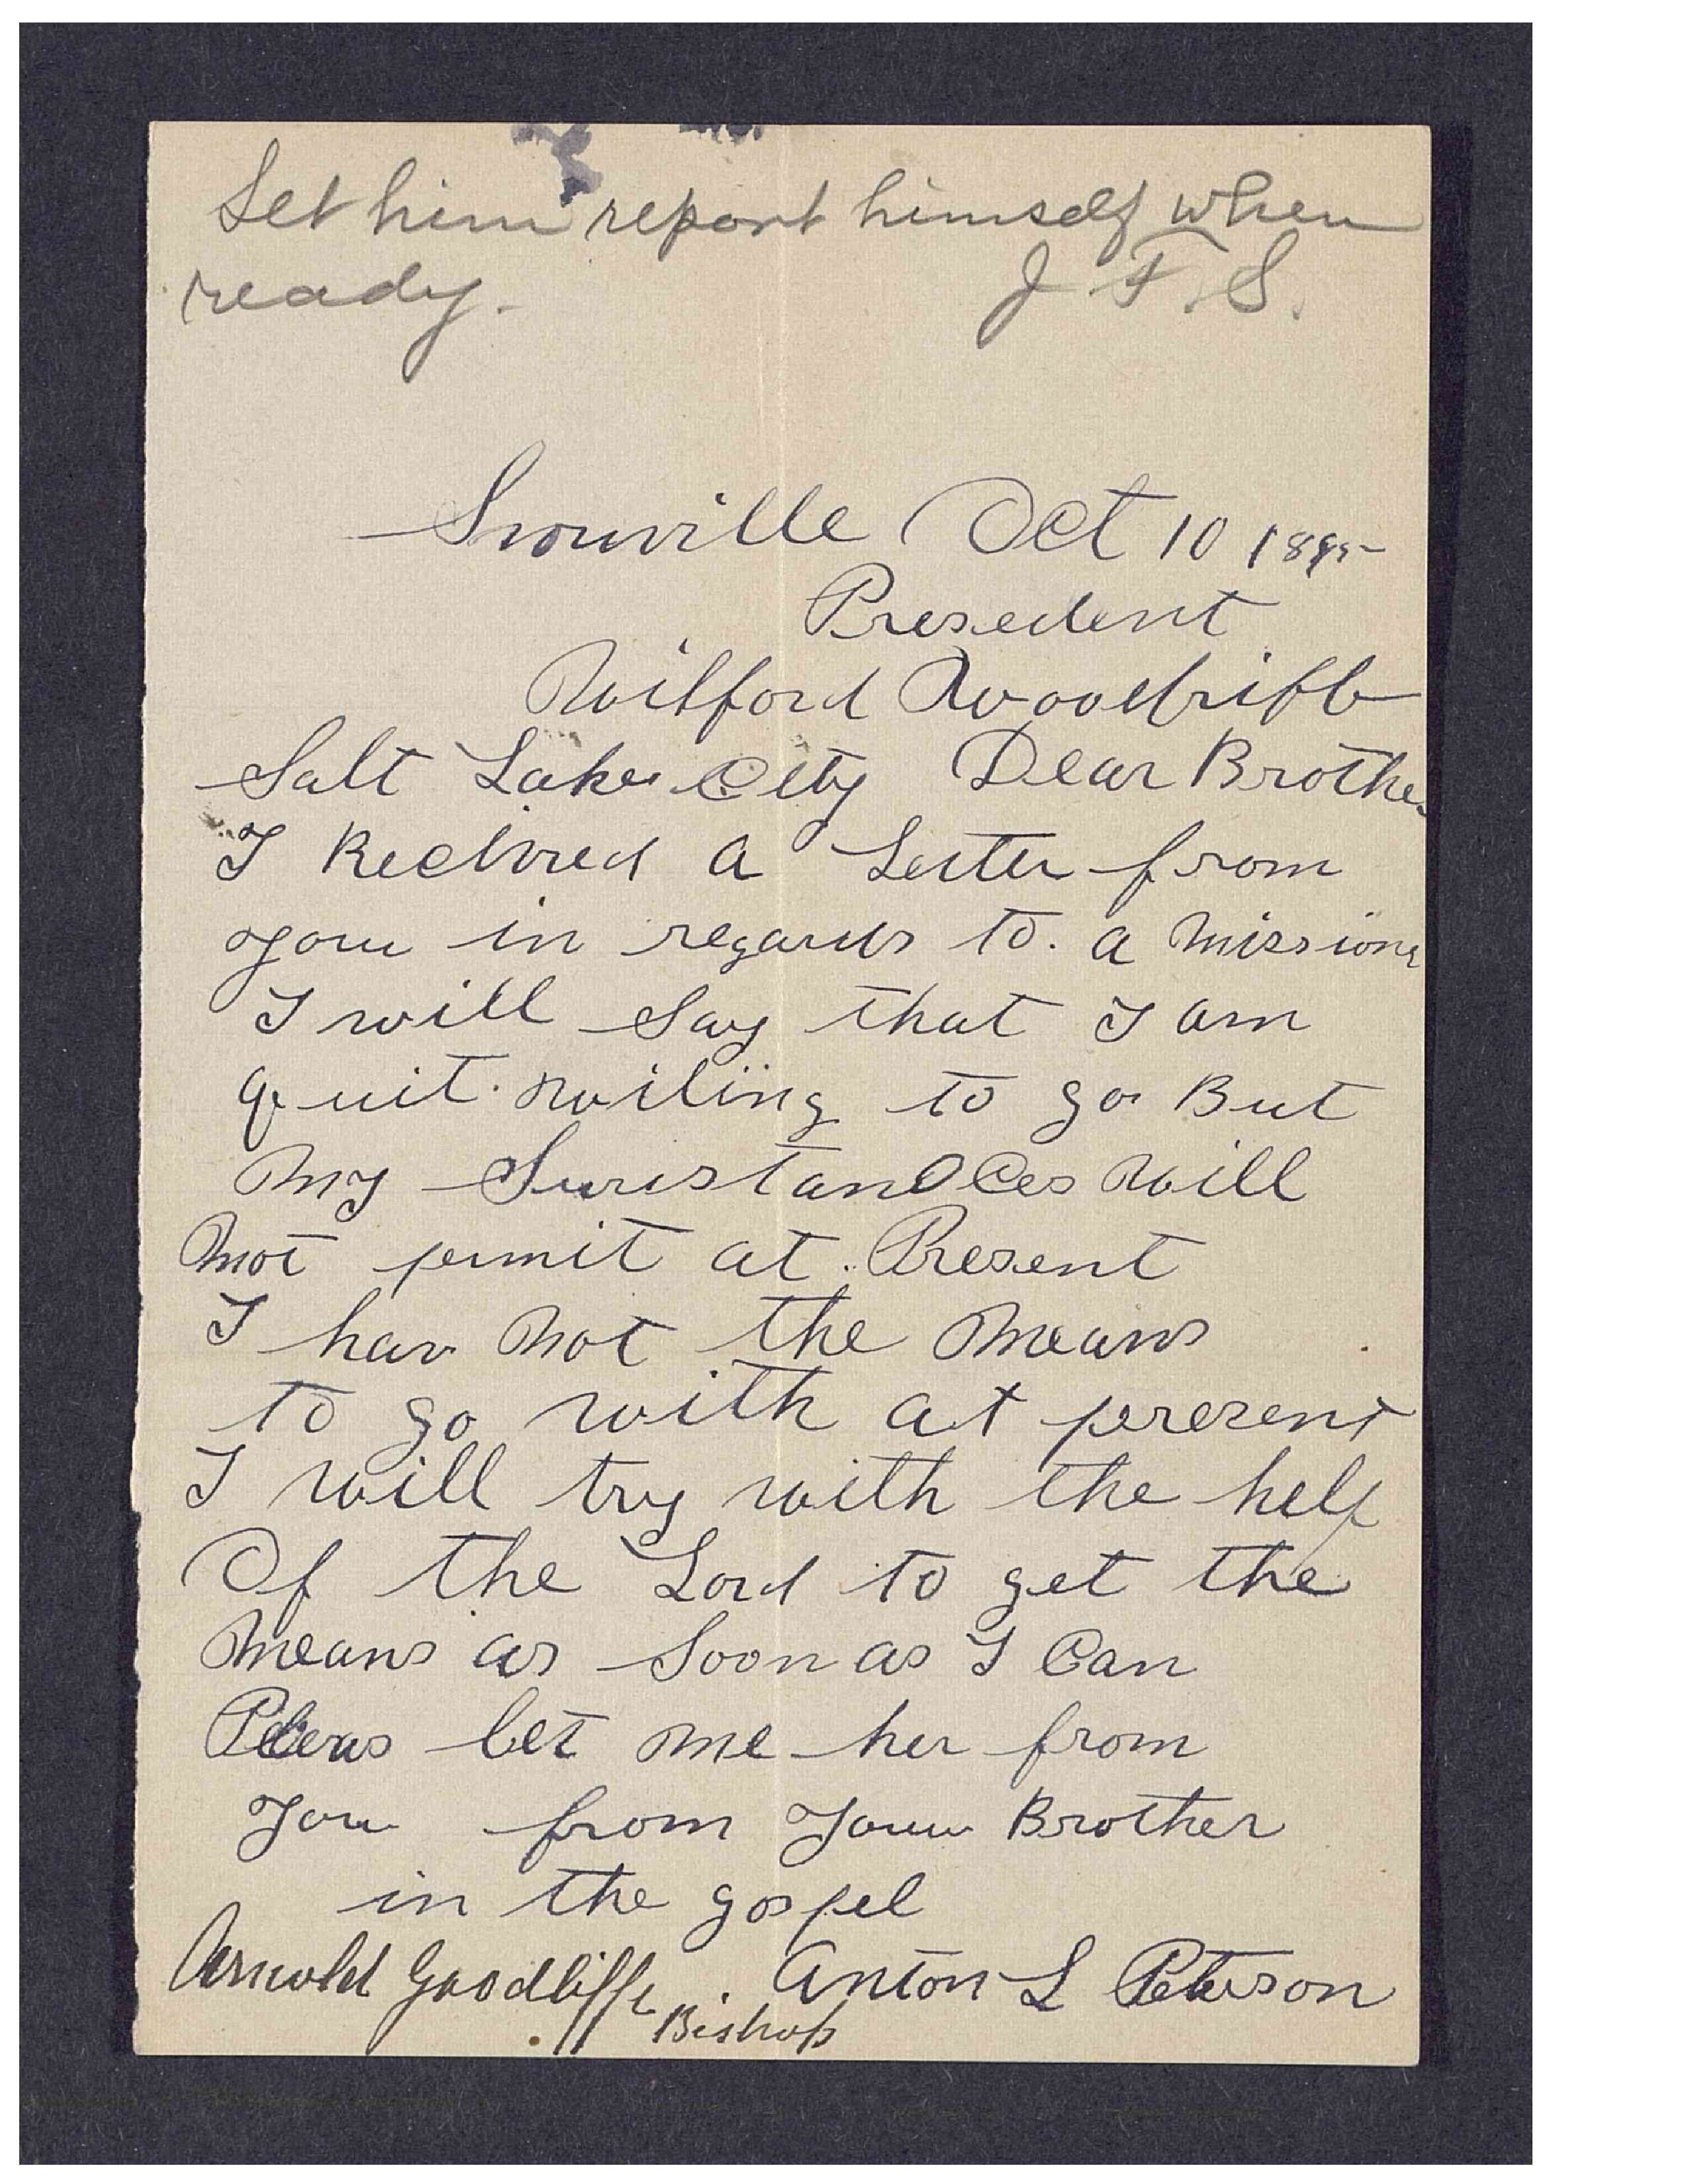 Let him report himself when
ready. J. F. S.
Snowville Oct 10 1895
Presedent
Wilford Woodriff
Salt Lake City Dear Brother
I Recived a Letter from
you in regards to a Mission
I will Say that I am
quit willing to go But
My Surcstances Will
not permit at Present
I hav not the Means
to go with at present
I will try with the help
Of the Lord to get the
Means as Soon as I Can
Pleas let me her from
you from your Brother
in the gospel
Arnold Goodliffe Anton L Peterson
Bishop